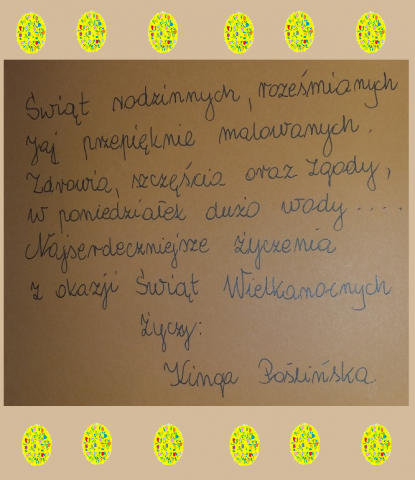 Świąt rodzinnych, roześmianych
Jaj przepięknie malowanych.
Zdrowia, szczęścia oraz zgody,
w poniedziałek dużo wody....
Najserdeczniejsze życzenia
z okazji Świąt Wielkanocnych
Życzy:
Kinga Roślińska.